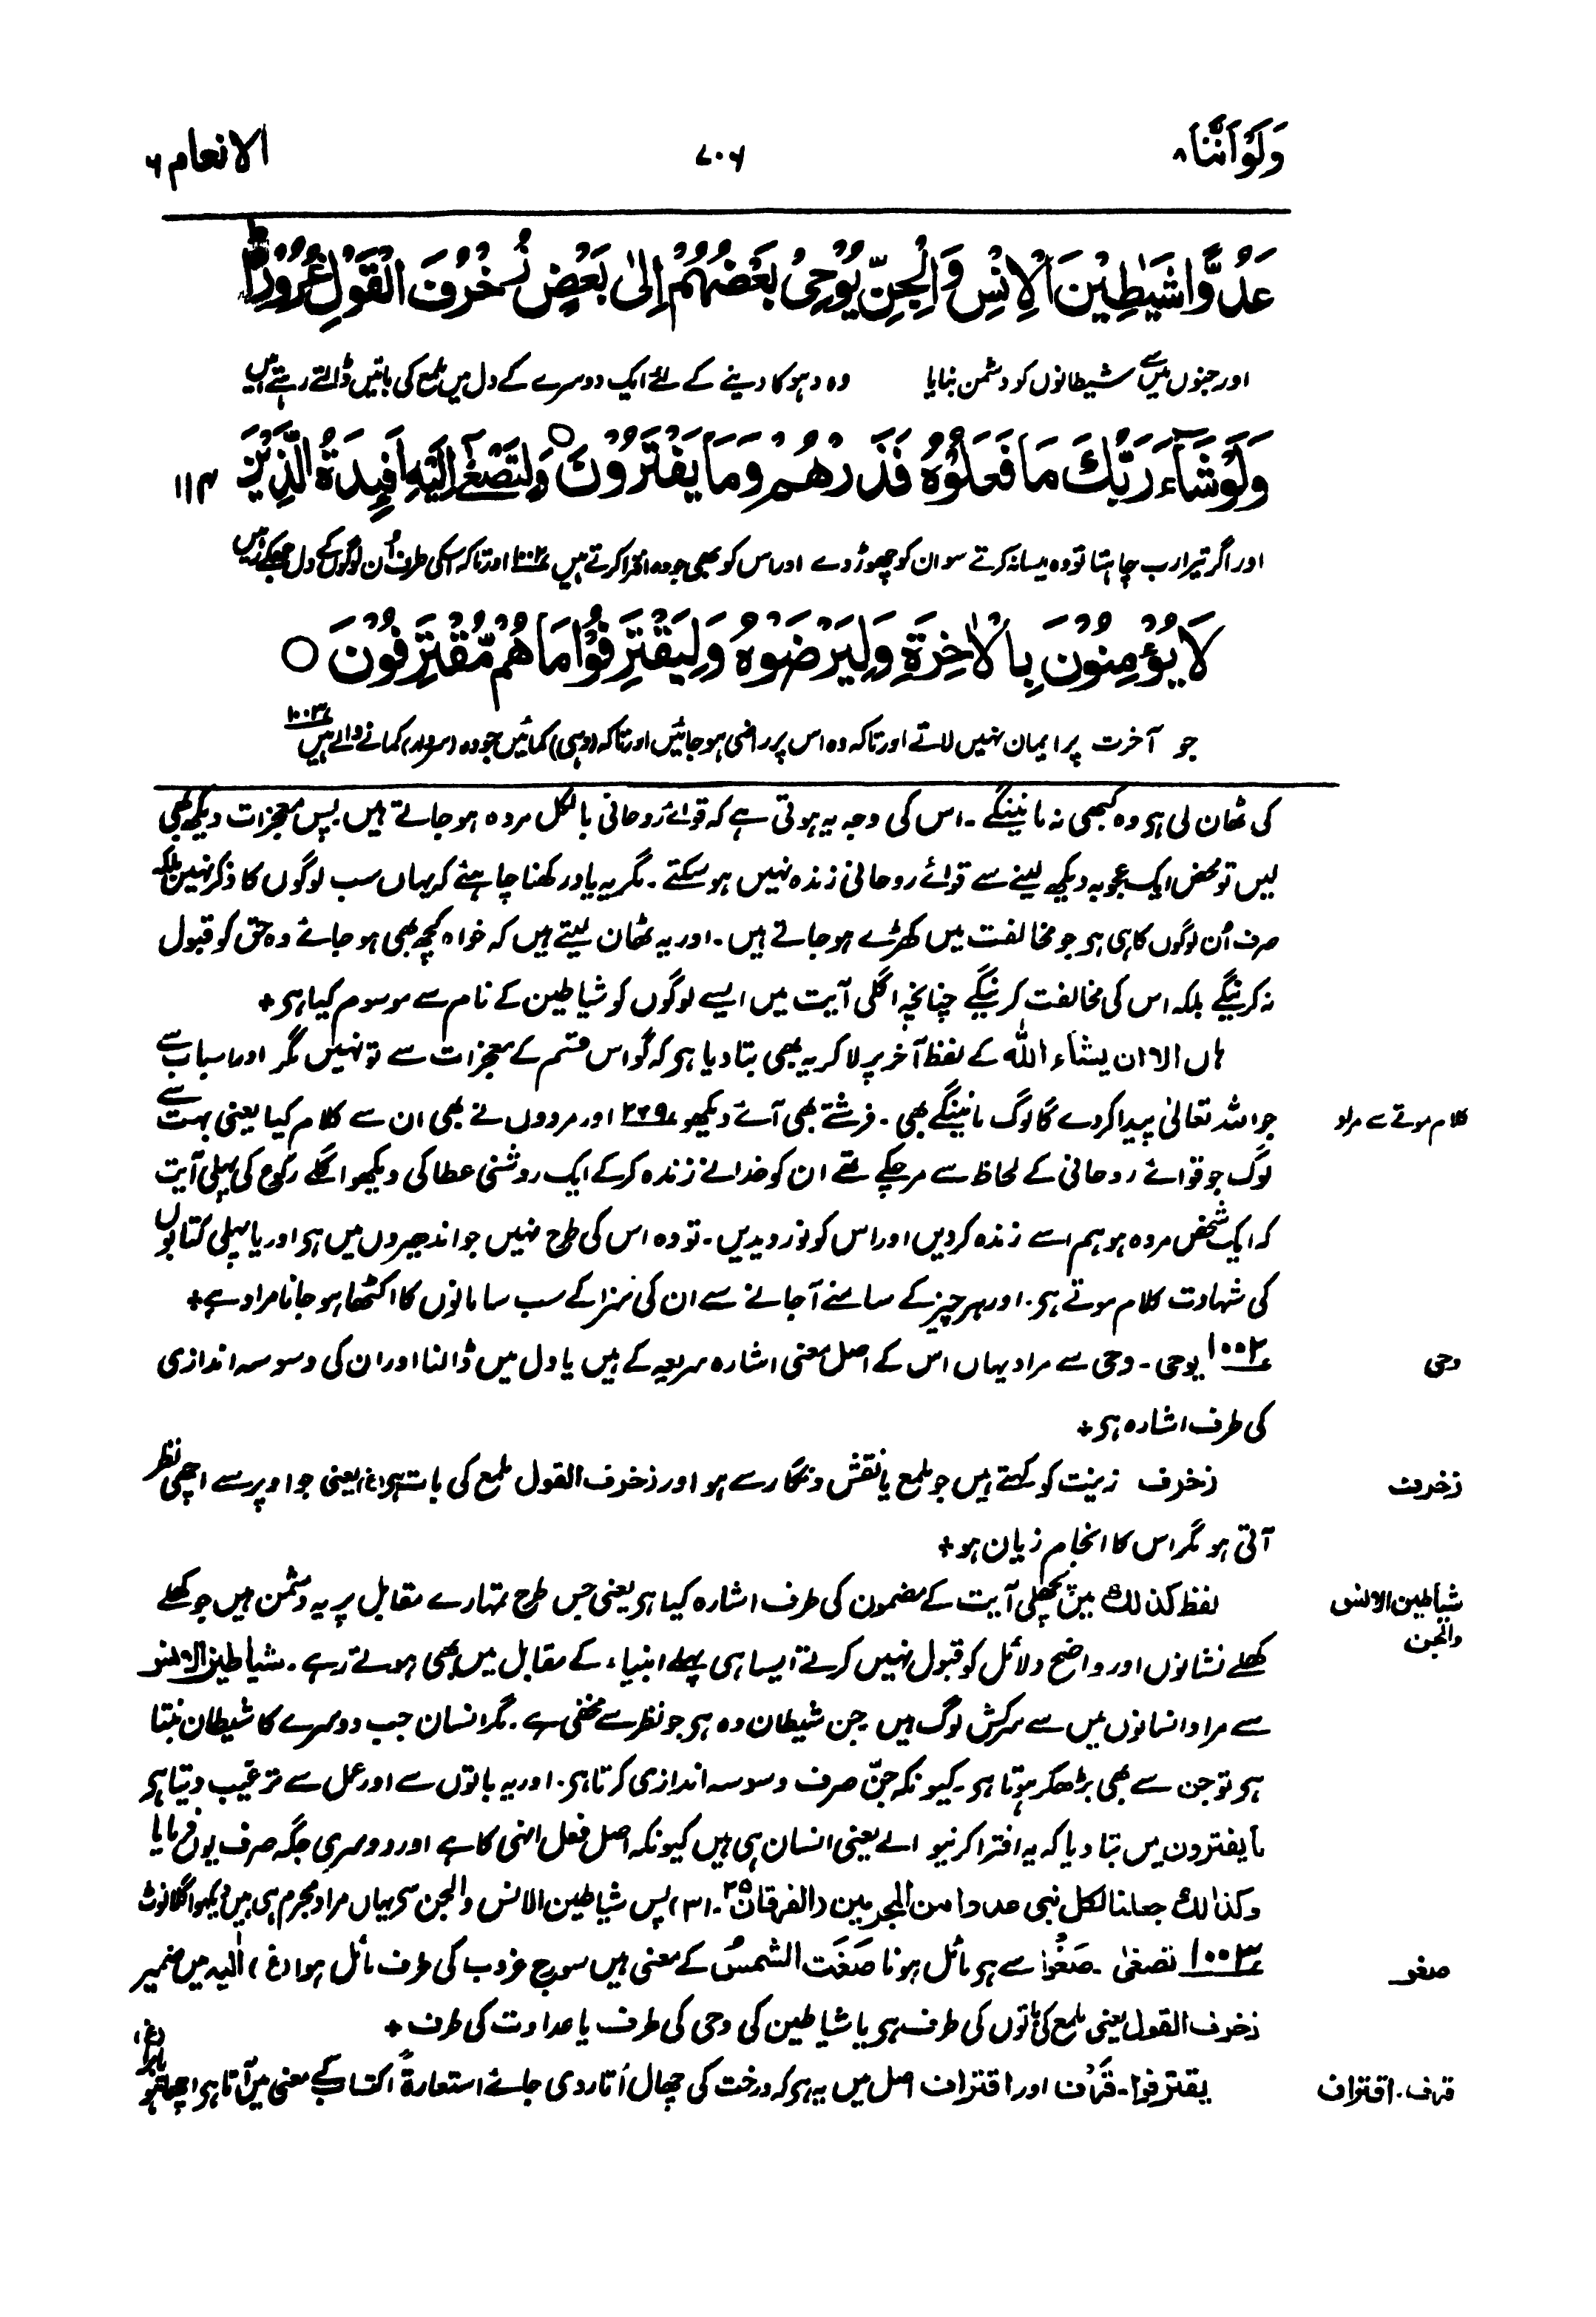 وَلَوْاَنَّنَا ۸
۷۰۶
الانعام ۶
عَدُوًّا شَيٰطِيْنَ الْاِنْسِ وَالْجِنِّ يُوْحِيْ بَعْضُهُمْ اِلٰى بَعْضٍ زُخْرُفَ الْقَوْلِ غُرُوْرًا ؕ
اور جنوں میں سے شیطانوں کو دشمن بنایا وہ دہوکا دینے کے لئے ایک دوسرے کے دل میں ملمع کی باتیں ڈالتے رہتے ہیں
وَلَوْ شَآءَ رَبُّكَ مَا فَعَلُوْهُ فَذَرْهُمْ وَمَا يَفْتَرُوْنَ ○ وَلِتَصْغٰٓى اِلَيْهِ اَفْـِٕدَةُ الَّذِيْنَ
۱۱۴
اور اگر تیرا رب چاہتا تو وہ ایسا نہ کرتے سو ان کو چھوڑ دے اور اس کو بھی جو وہ افترا کرتے ہیں ۱۰۰۲ اور تاکہ اسکی طرف اُن لوگوں کے دل جھکے رہیں
لَا يُؤْمِنُوْنَ بِالْاٰخِرَةِ وَلِيَرْضَوْهُ وَلِيَقْتَرِفُوْا مَا هُمْ مُّقْتَرِفُوْنَ ○
جو آخرت پر ایمان نہیں لاتے اور تاکہ وہ اس پر راضی ہو جائیں اور تاکہ (وہی) کمائیں جو وہ کمانے والے ہیں ۱۰۰۳
کی ٹھان لی ہو وہ کبھی نہ مانینگے ۔ اس کی وجہ یہ ہوتی ہے کہ قوائے روحانی بالکل مردہ ہو جاتے ہیں پس معجزات دیکھ بھی
لیں تو محض ایک عجوبہ دیکھ لینے سے قوائے روحانی زندہ نہیں ہو سکتے ۔ مگر یہ یاد رکھنا چاہئے کہ یہاں سب لوگوں کا ذکر نہیں بلکہ
صرف اُن لوگوں کا ہی ہو جو مخالفت میں کھڑے ہو جاتے ہیں ۔ اور یہ ٹھان لیتے ہیں کہ خواہ کچھ بھی ہو جائے وہ حق کو قبول
نہ کرینگے بلکہ اس کی مخالفت کرینگے چنانچہ اگلی آیت میں ایسے لوگوں کو شیاطین کے نام سے موسوم کیا ہو +
ہاں الا ان یشاء اللّٰہ کے لفظ آخر پر لا کر یہ بھی بتا دیا ہو کہ گو اس قسم کے معجزات سے تو نہیں مگر اور اسباب سے
جو اللہ تعالیٰ پیدا کر دے گا لوگ مانینگے بھی ۔ فرشتے بھی آئے دیکھو ۲۲۹ اور مردوں نے بھی ان سے کلام کیا یعنی بہت سے
کلام موتے سے مراد
لوگ جو قوائے روحانی کے لحاظ سے مر چکے تھے ان کو خدا نے زندہ کرکے ایک روشنی عطا کی دیکھو اگلے رکوع کی پہلی آیت
کہ ایک شخص مردہ ہو ہم اسے زندہ کر دیں اور اس کو نور دیدیں ۔ تو وہ اس کی طرح نہیں جو اندھیروں میں ہو اور یا پہلی کتابوں
کی شہادت کلام موتے ہو ۔ اور ہر چیز کے سامنے آجانے سے ان کی سزا کے سب سامانوں کا اکٹھا ہو جانا مراد ہے +
۱۰۰۲ یوحی ۔ وحی سے مراد یہاں اس کے اصل معنی اشارہ سریعہ کے ہیں یا دل میں ڈالنا اور ان کی وسوسہ اندازی
وحی
کی طرف اشارہ ہو +
زخرف زینت کو کہتے ہیں جو ملمع یا نقش و نگار سے ہو اور زخرف القول ملمع کی بات ہو (غ) یعنی جو اوپر سے اچھی نظر
زخرف
آتی ہو مگر اس کا انجام زیان ہو +
لفظ کذٰلک میں پچھلی آیت کے مضمون کی طرف اشارہ کیا ہو یعنی جس طرح تمہارے مقابل پر یہ دشمن ہیں جو کھلے
شیاطین الانس والجن
کھلے نشانوں اور واضح دلائل کو قبول نہیں کرتے ایسا ہی پہلے انبیاء کے مقابل میں بھی ہوتے رہے ۔ شیاطین الانس
سے مراد انسانوں میں سے سرکش لوگ ہیں جن شیطان وہ ہو جو نظر سے مخفی ہے ۔ مگر انسان جب دوسرے کا شیطان بنتا
ہو تو جن سے بھی بڑھکر ہوتا ہو ۔ کیونکہ جنّ صرف وسوسہ اندازی کرتا ہو ۔ اور یہ باتوں سے اور عمل سے ترغیب دیتا ہو
ما یفترون میں بتا دیا کہ یہ افترا کرنیوالے یعنی انسان ہی ہیں کیونکہ اصل فعل انہی کا ہے اور دوسری جگہ صرف یوں فرمایا
وکذٰلک جعلنا لکل نبی عدوا من المجرمین (الفرقان ۲۵ ۔ ۳۱) پس شیاطین الانس والجن سے یہاں مراد مجرم ہی ہیں دیکھو اگلا نوٹ
۱۰۰۳ تصغیٰ ۔ صَغْوٌ سے ہو مائل ہونا صَغَت الشمسُ کے معنی ہیں سورج غروب کی طرف مائل ہوا (غ) الیہ میں ضمیر
صغو
زخرف القول یعنی ملمع کی باتوں کی طرف ہو یا شیاطین کی وحی کی طرف یا عداوت کی طرف +
یقترفوا ۔ قَرْف اور اقتراف اصل میں یہ ہو کہ درخت کی چھال اُتار دی جائے استعارۃً اکتساب کے معنی میں آتا ہو اچھا ہو یا بُرا (غ)
قرف ۔ اقتراف